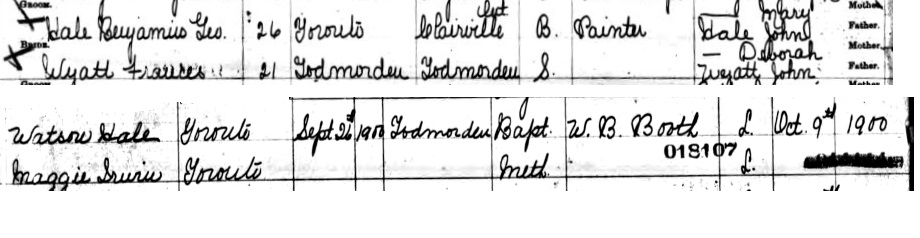 Groom.
Mary
Mother.
Hale Benjamin Geo. 26 Toronto Clairville Ont B. Painter Hale John Father.
Baron.
— Deborah Mother.
Wyatt Frances 21 Todmorden Todmorden S. Wyatt John Father.
Watson Hale Toronto Sept 26th 1900 Todmorden Bapt. W. B. Booth L. Oct. 9th 1900
018107
Maggie Irwin Toronto Meth. L.